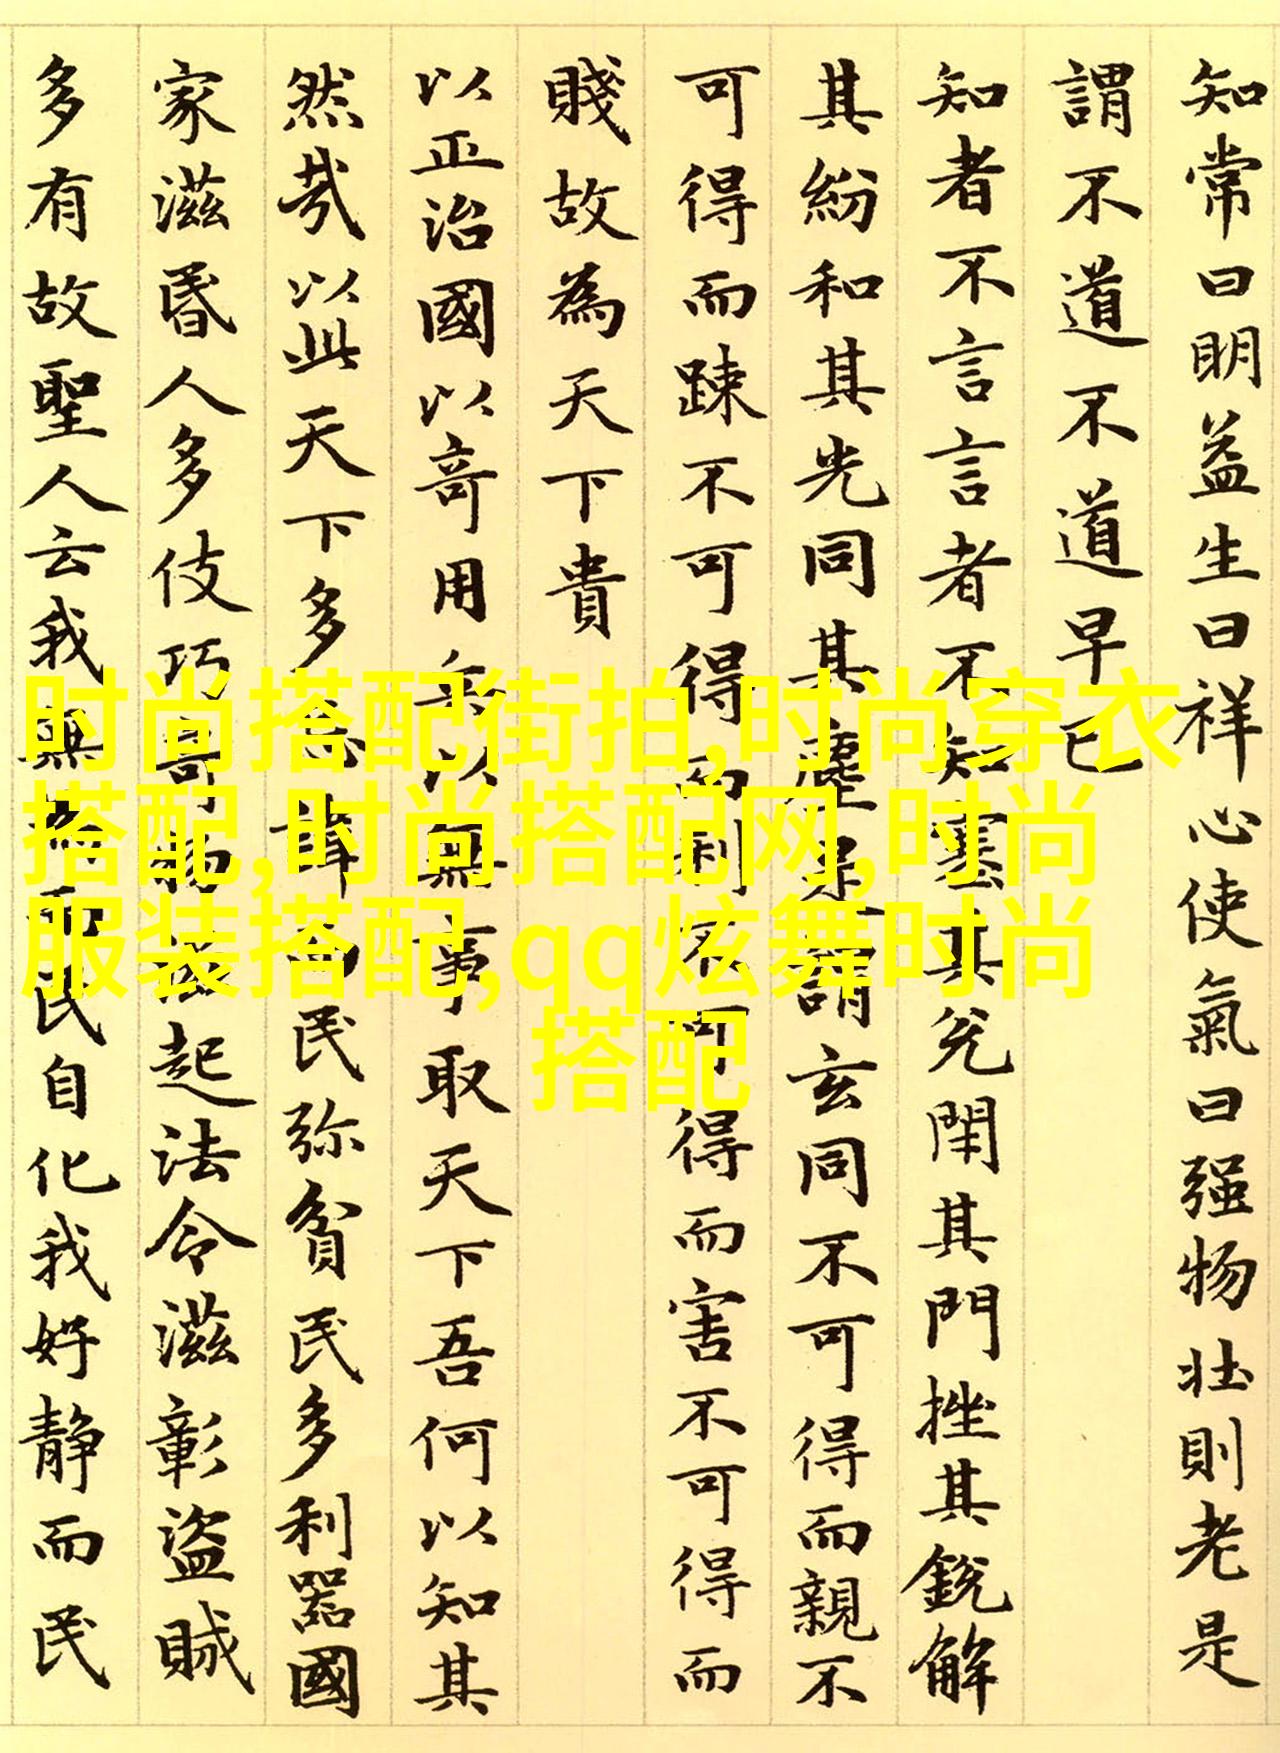 知常曰明益生曰祥心使氣曰强物壯則老是
謂不道不道早已
知者不言言者不知塞其兌閇其門挫其銳解
其紛和其光同其塵是謂玄同不可得而親不
可得而踈不可得而利不可得而害不可得而
賤故為天下貴
以正治國以竒用兵以無事取天下吾何以知其
然哉以此天下多忌諱而民弥貧民多利器國
家滋昬人多伎巧竒物滋起法令滋彰盜賊
多有故聖人云我無為而民自化我好静而民
时尚搭配街拍,时尚穿衣
搭配,时尚搭配网,时尚
服装搭配,qq炫舞时尚
搭配